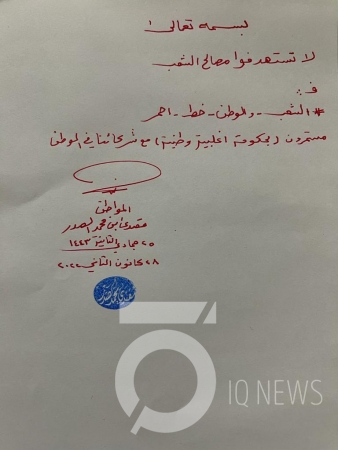 بسمه تعالى
لا تستهدفوا مصالح الشعب
فـ:
#الشعب - والوطن - خط - احمر
مستمرون (بحكومة اغلبية وطنية) مع شركائنا في الوطن
المواطن
مقتدى ابن محمد الصدر
٢٥ جمادي الثانية ١٤٤٣
٢٨ كانون الثاني ٢٠٢٢
IQ NEWS